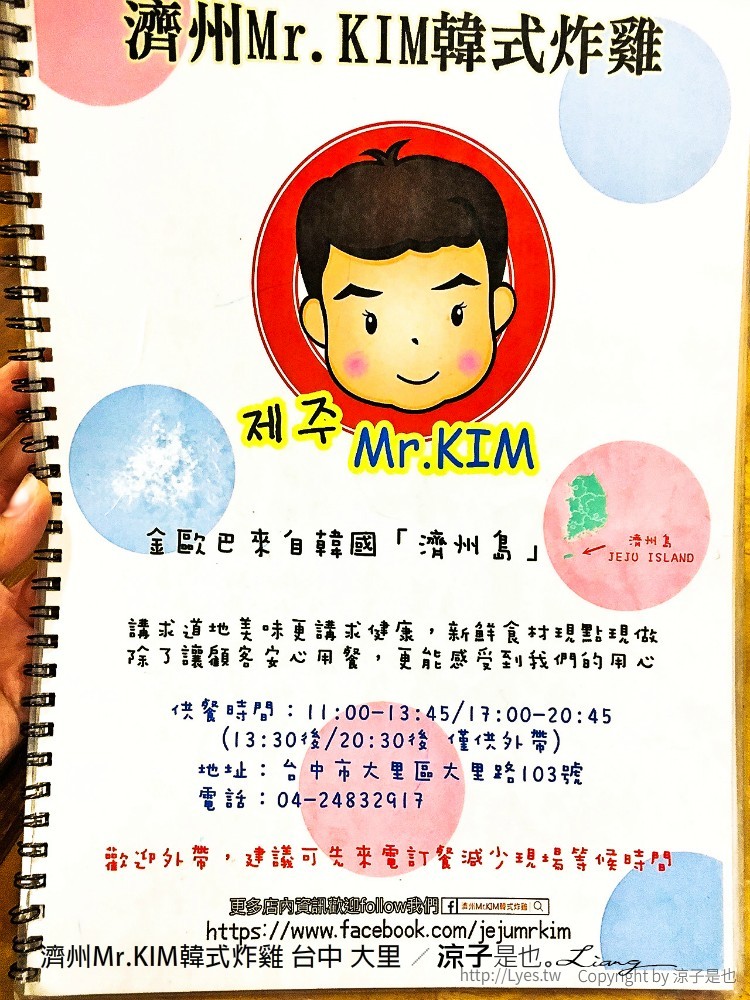 濟州Mr.KIM韓式炸雞
제주 Mr.KIM
金歐巴來自韓國「濟州島」
濟州島
JEJU ISLAND
講求道地美味更講求健康，新鮮食材現點現做
除了讓顧客安心用餐，更能感受到我們的用心
供餐時間：11:00-13:45/17:00-20:45
(13:30後/20:30後 僅供外帶)
地址：台中市大里區大里路103號
電話：04-24832917
歡迎外帶，建議可先來電訂餐減少現場等候時間
更多店內資訊歡迎follow我們 f 濟州Mr.KIM韓式炸雞
https://www.facebook.com/jejumrkim
濟州Mr.KIM韓式炸雞 台中 大里 ／ 涼子是也。Liang
http://Lyes.tw Copyright by 涼子是也